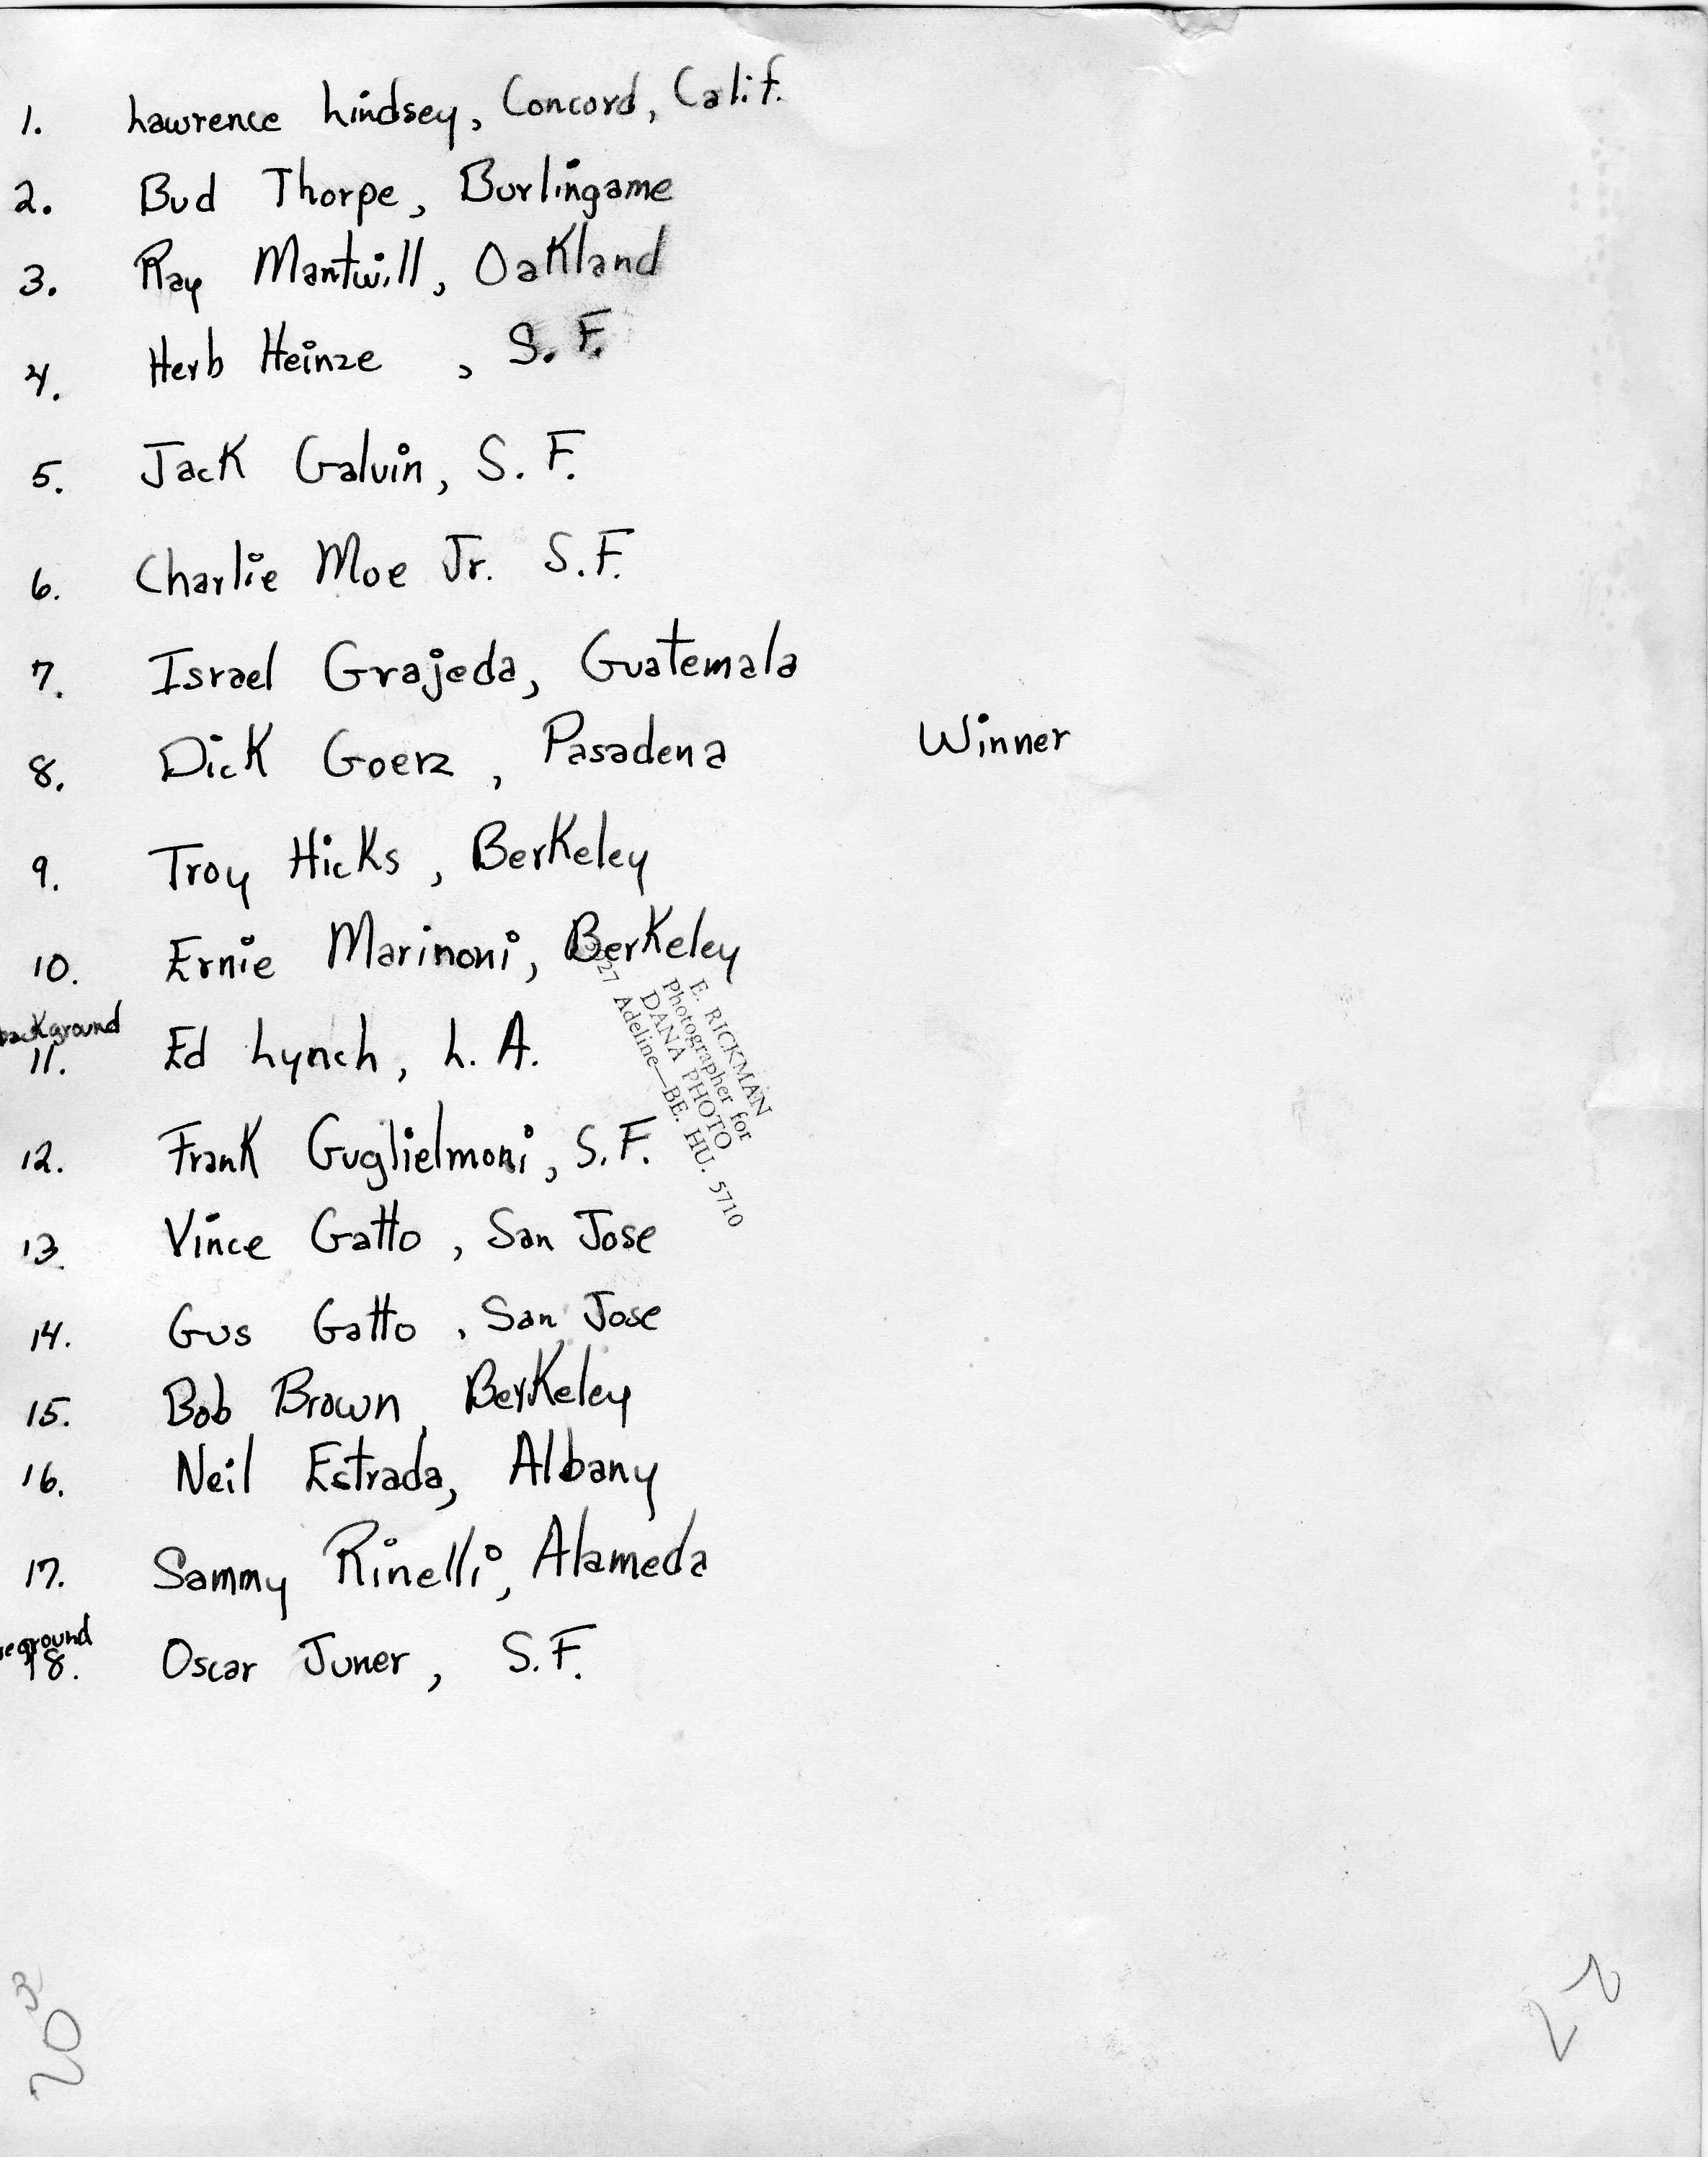 1. Lawrence Lindsey, Concord, Calif.
2. Bud Thorpe, Burlingame
3. Ray Mantwill, Oakland
4. Herb Heinze , S. F.
5. Jack Galvin, S. F.
6. Charlie Moe Jr. S.F.
7. Israel Grajeda, Guatemala
8. Dick Goerz , Pasadena Winner
9. Troy Hicks , Berkeley
10. Ernie Marinoni, Berkeley
E. RICKMAN
Photographer for
DANA PHOTO
Adeline—BE. HU. 5710
background
11. Ed Lynch, L. A.
12. Frank Guglielmoni, S.F.
13. Vince Gatto , San Jose
14. Gus Gatto , San Jose
15. Bob Brown, Berkeley
16. Neil Estrada, Albany
17. Sammy Rinelli, Alameda
18. Oscar Juner, S.F.